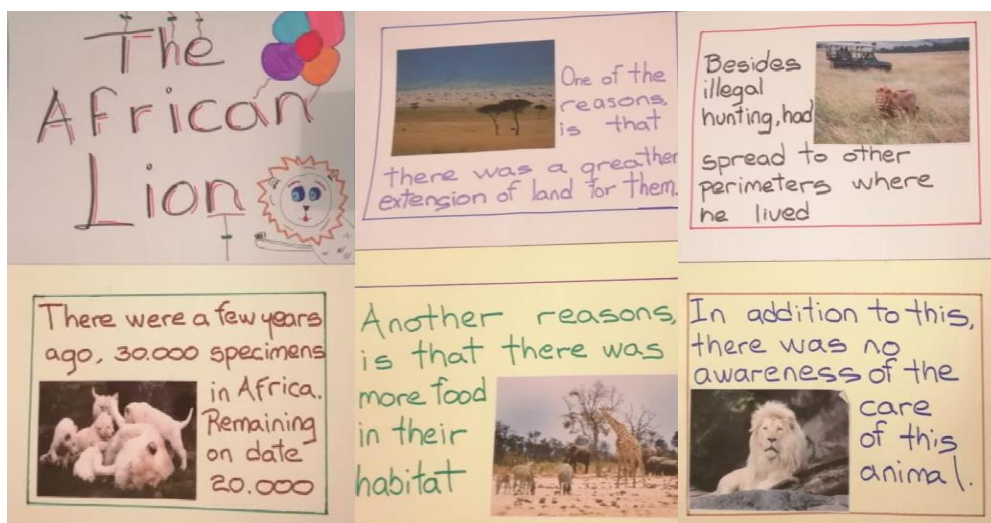 The
African
Lion
One of the
reasons,
is that
there was a greather
extension of land for them.
Besides
illegal
hunting, had
spread to other
perimeters where
he lived
There were a few years
ago, 30.000 specimens
in Africa.
Remaining
on date
20.000
Another reasons,
is that there was
more food
in their
habitat
In addition to this,
there was no
awareness of the
care
of this
animal.